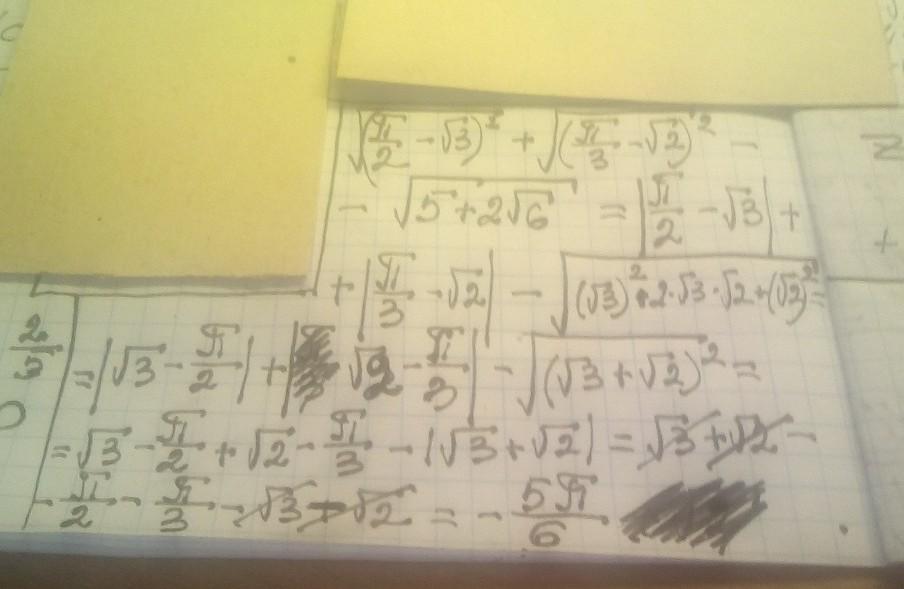 √(π/2 - √3)² + √(π/3 - √2)² -
- √(5 + 2√6) = |π/2 - √3| +
+ |π/3 - √2| - √((√3)² + 2·√3·√2 + (√2)²) =
= |√3 - π/2| + |√2 - π/3| - √(√3 + √2)² =
= √3 - π/2 + √2 - π/3 - |√3 + √2| = √3 + √2 -
- π/2 - π/3 - √3 - √2 = - 5π/6